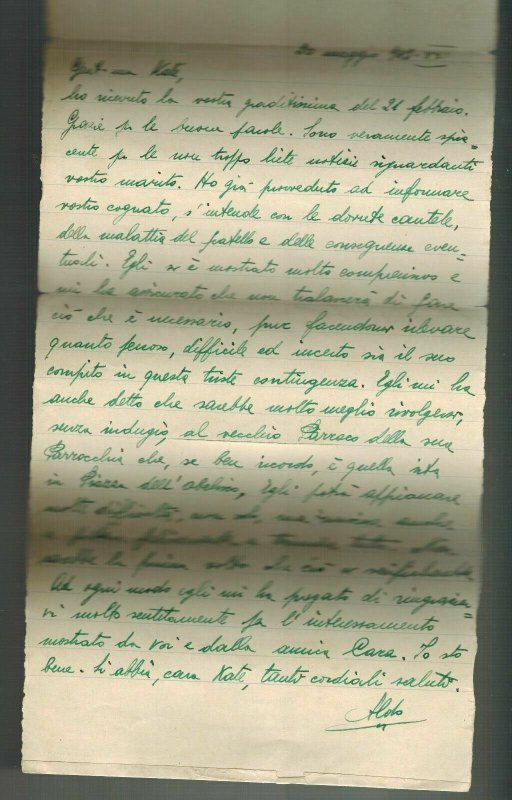 20 maggio
Kate,
ho ricevuto la vostra graditissima del 21 febbraio.
Grazie p le buone parole. Sono veramente spia=
cente p le non troppo liete notizie riguardanti
vostro marito. Ho già proveduto ad informare
vostro cognato, s'intende con le dovute cautele,
della malattia del fratello e delle conseguenze even-
tuali. Egli si è mostrato molto comprensivo e
mi ha assicurato che non tralascerà di fare
ciò che è necessario, pur facendomi rilevare
quanto penoso, difficile ed incerto sia il suo
compito in questa triste contingenza. Egli mi ha
anche detto che sarebbe molto meglio rivolgersi,
senza indugio, al vecchio Parroco della sua
Parrocchia che, se ben ricordo, è quella sita
in Piazza dell'obelisco. Egli potrà appianare
molte difficoltà, non
la prima volta che ciò si
Ad ogni modo egli mi ha pregato di ringraziar=
vi molto sentitamente p l'interessamento
mostrato da voi e dalla amica Cara. Io sto
bene. Si abbia, cara Kate, tanti cordiali saluti.
Aldo